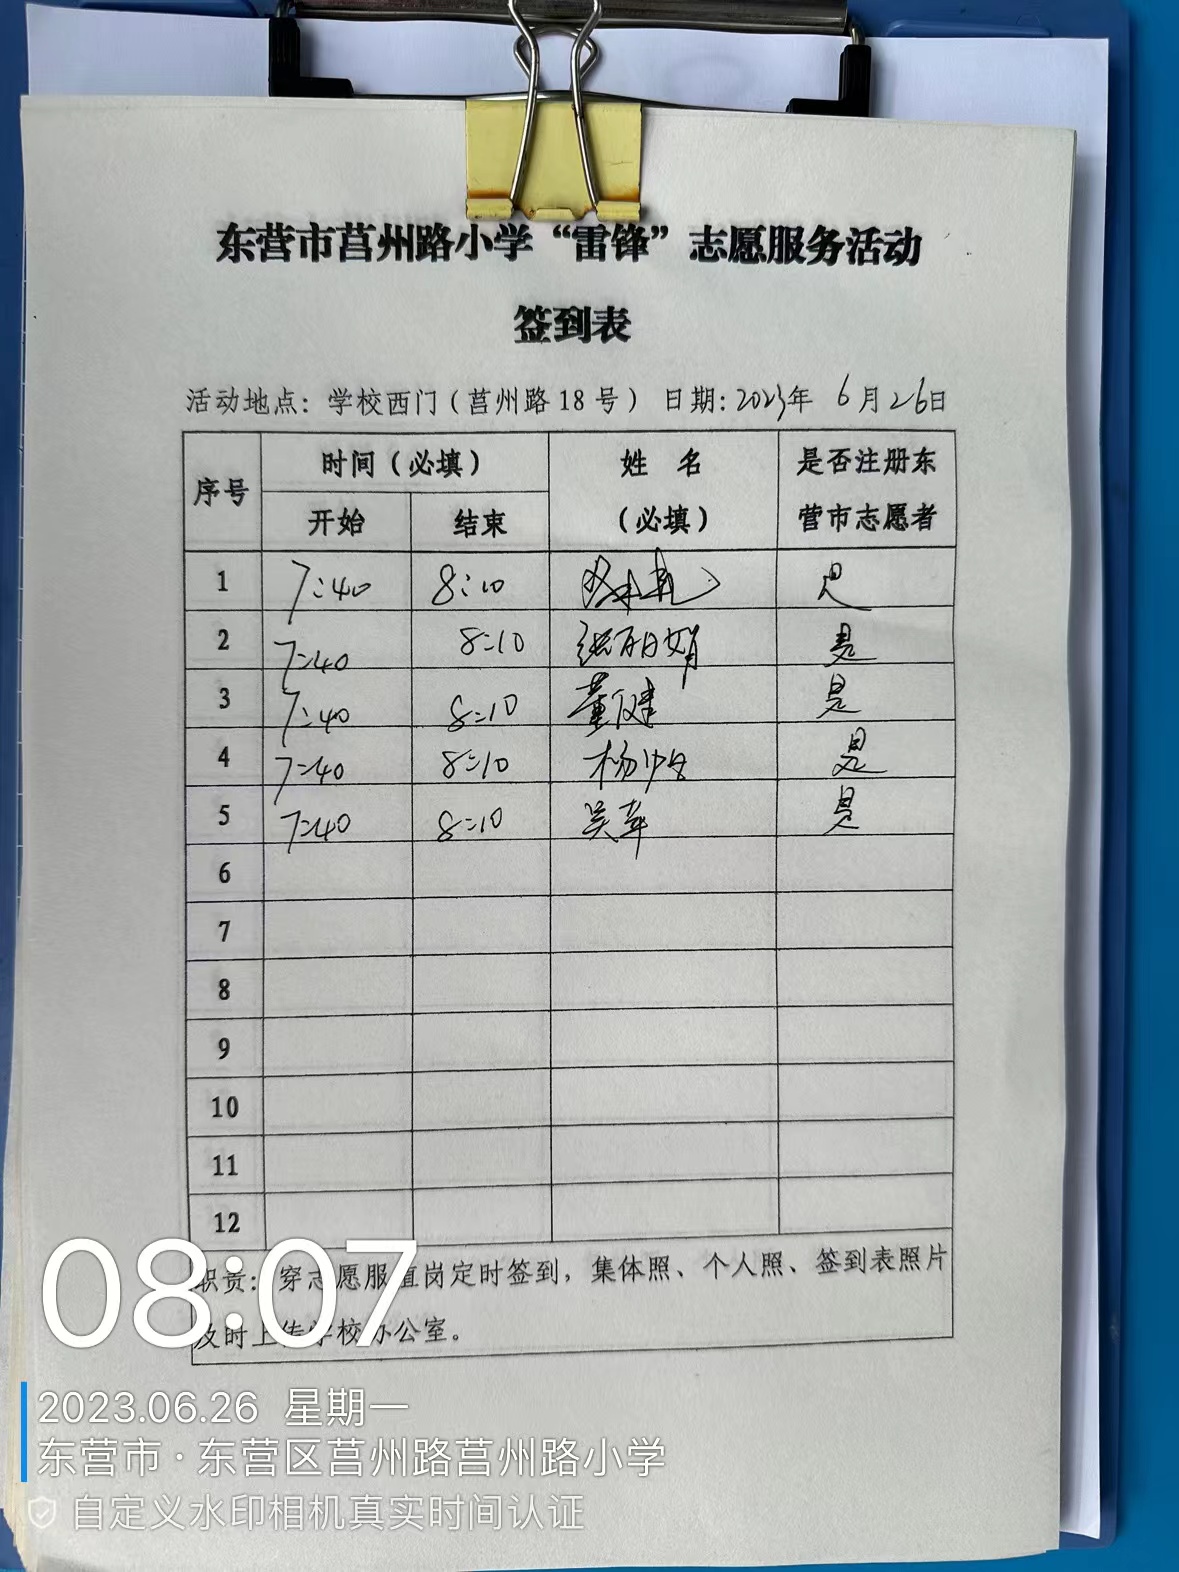 东营市莒州路小学“雷锋”志愿服务活动
签到表
活动地点：学校西门（莒州路18号） 日期：2023年 6月26日
序号 时间（必填） 姓 名 是否注册东
开始 结束 （必填） 营市志愿者
1 7:40 8:10 是
2 7:40 8:10 张丽娟 是
3 7:40 8:10 董健 是
4 7:40 8:10 杨 是
5 7:40 8:10 吴 是
6
7
8
9
10
11
12
职责：穿志愿服值岗定时签到，集体照、个人照、签到表照片
及时上传学校办公室。
08:07
2023.06.26 星期一
东营市·东营区莒州路莒州路小学
自定义水印相机真实时间认证